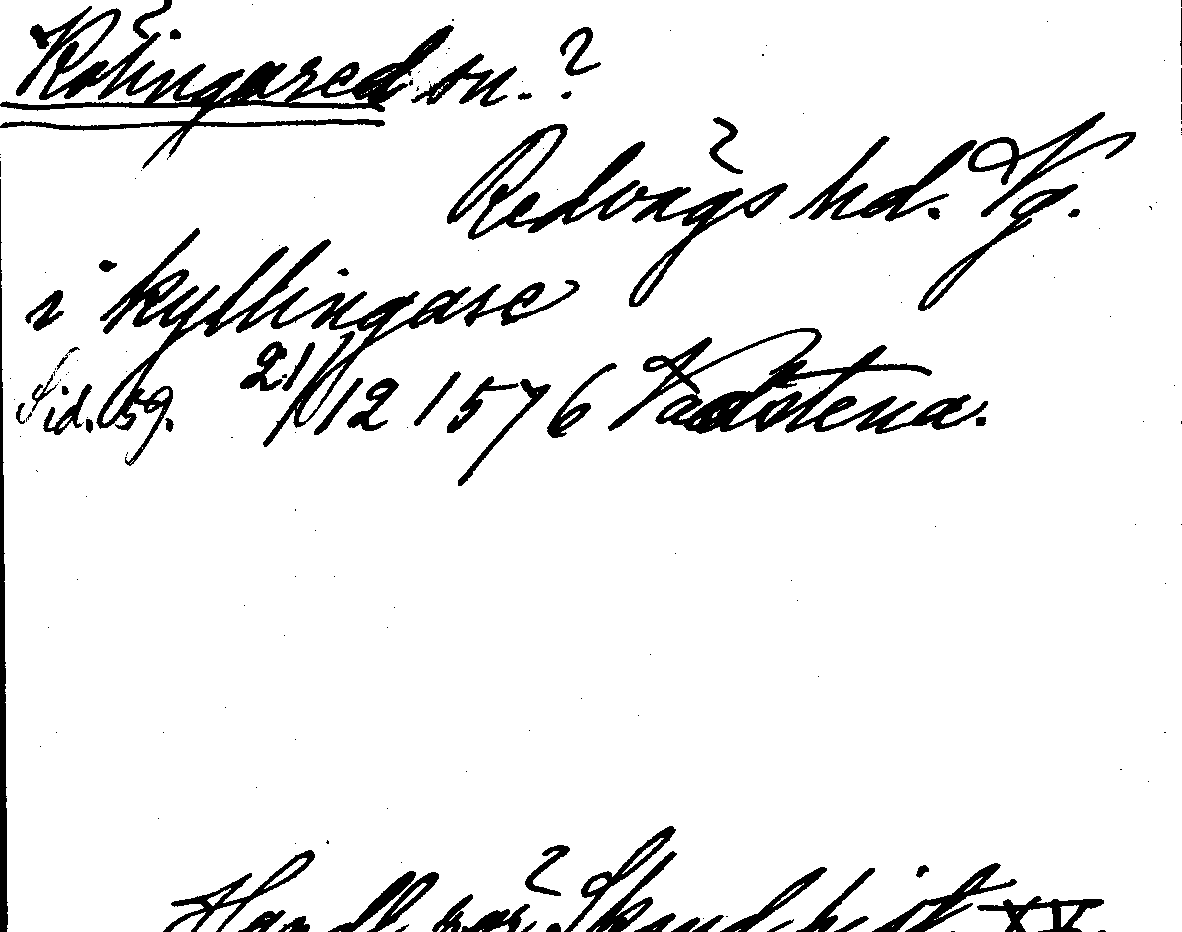 Kölingared sn. ?
Redvägs hd. Vg.
i kyllingase
Sid. 59. 21/12 1576 Vadstena.
Handl. rör. Skand. hist. XV.